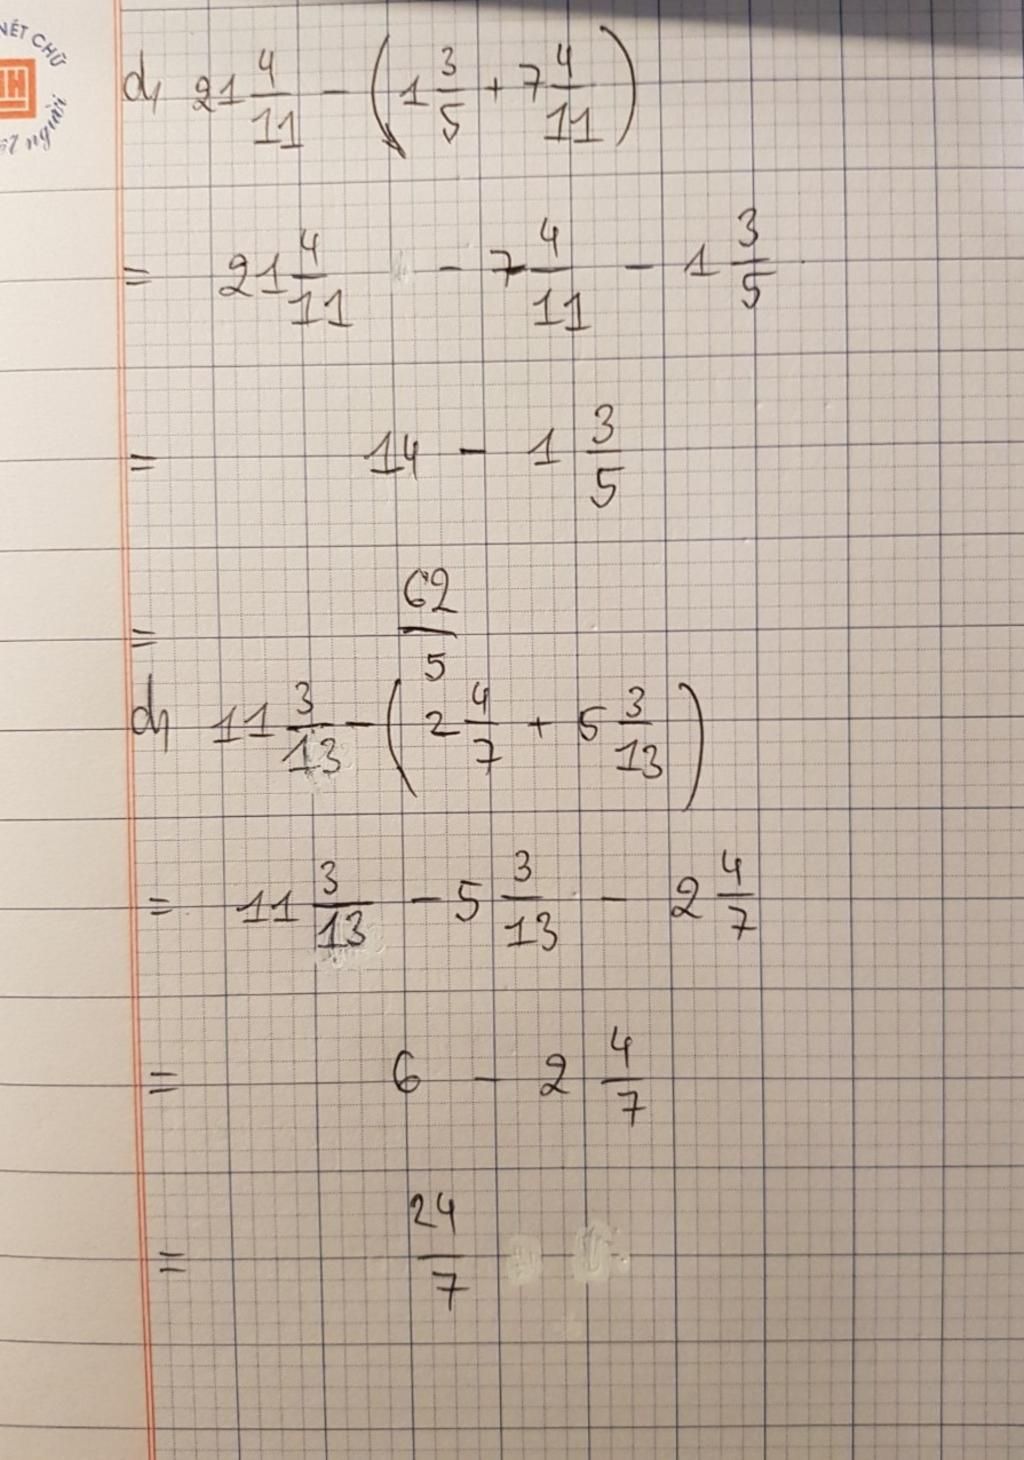 NÉT CHỮ
người
d, 21 4/11 - (1 3/5 + 7 4/11)
= 21 4/11 - 7 4/11 - 1 3/5
= 14 - 1 3/5
= 62/5
d, 11 3/13 - (2 4/7 + 5 3/13)
= 11 3/13 - 5 3/13 - 2 4/7
= 6 - 2 4/7
= 24/7